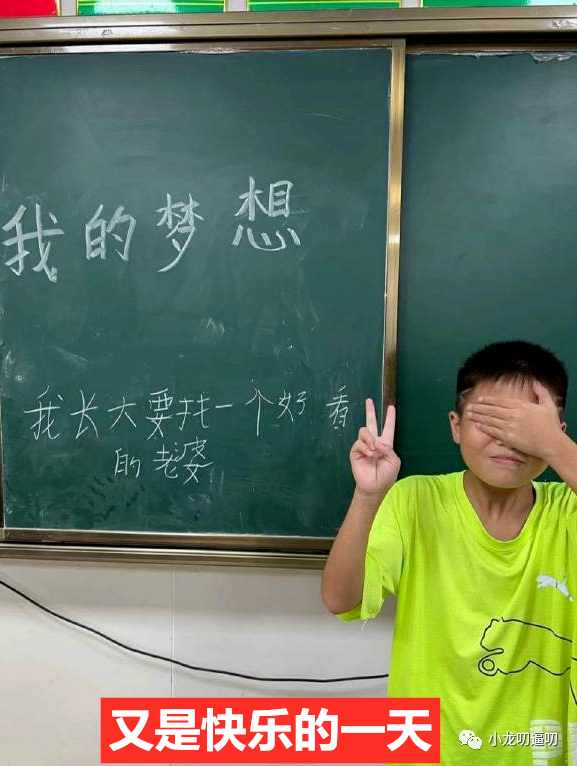 我的梦想
我长大要找一个好看
的老婆
又是快乐的一天
小龙叨逼叨